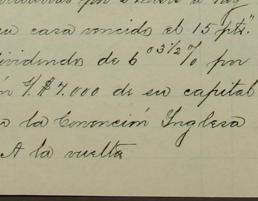 su casa vencido el 15 pts."
dividendo de 6 03½% por
$7.000 de su capital
a la Convención Inglesa
A la vuelta